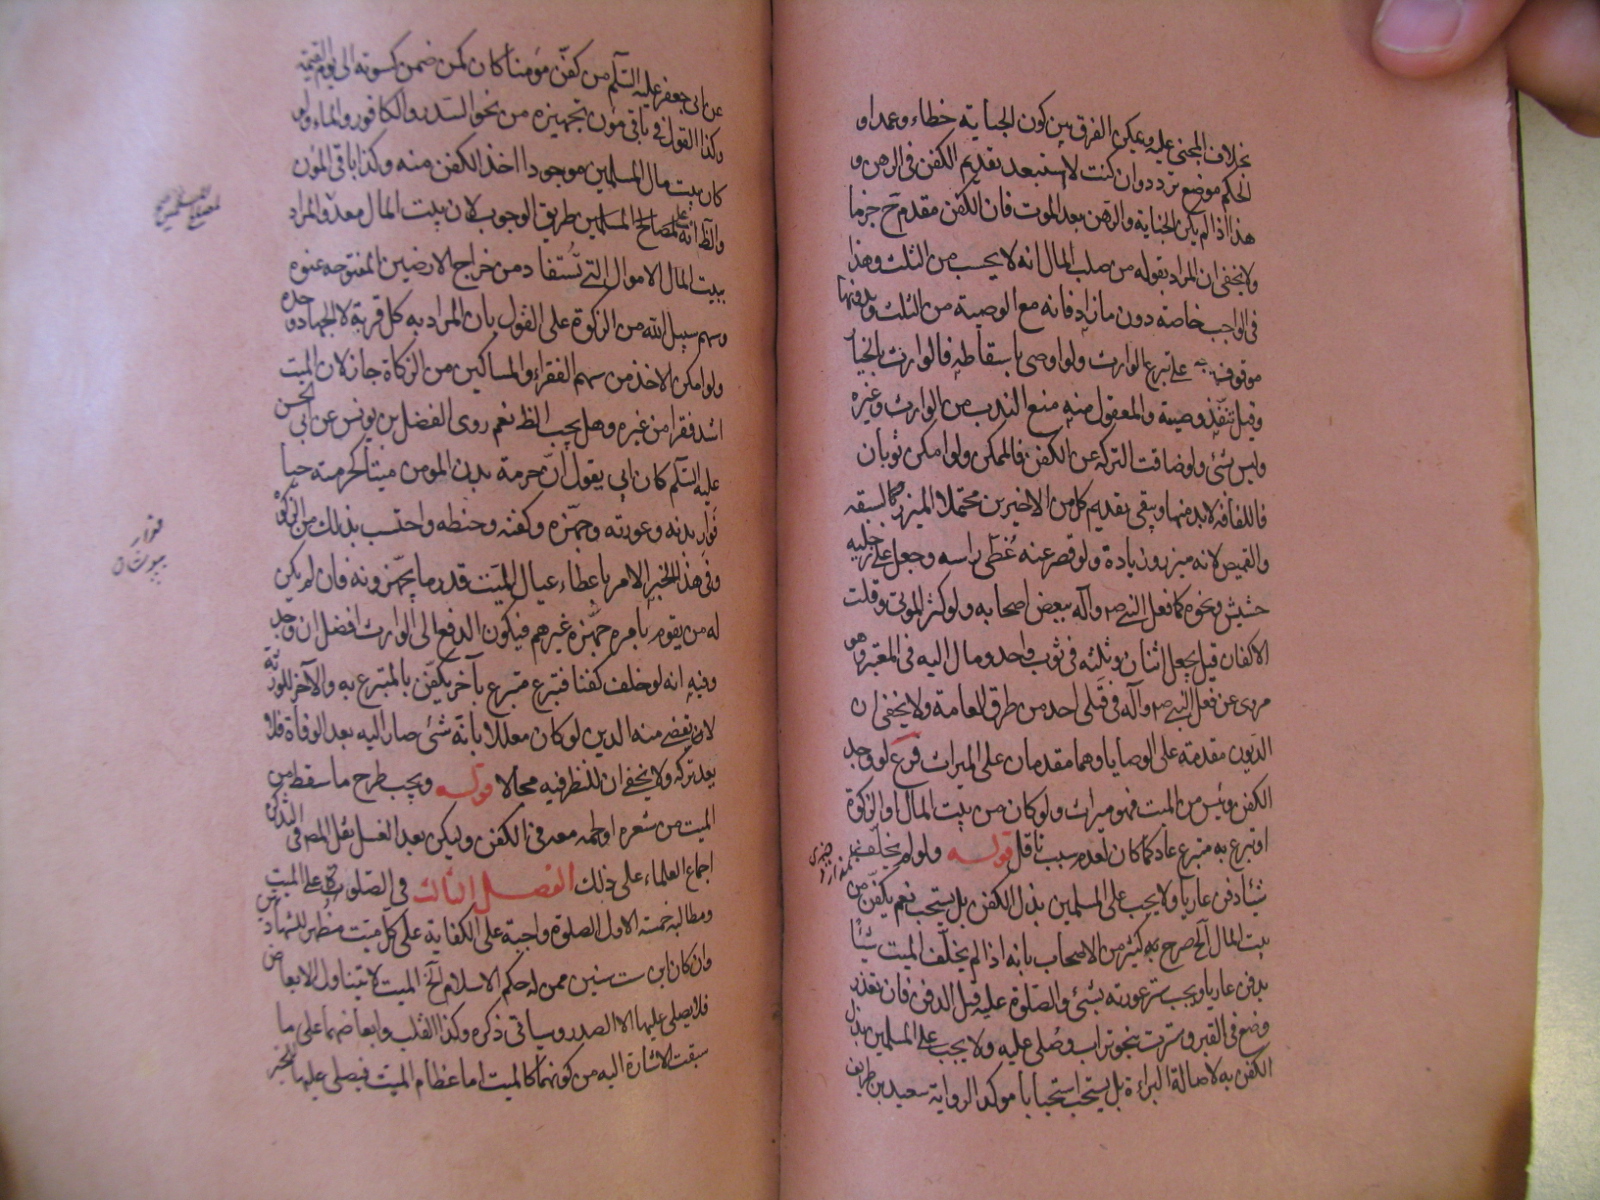 بخلاف المجنى عليه ويمكن الفرق بين كون الجناية خطاء وعمدا و
الحكم موضع تردد وان كنت لا استبعد تقديم الكفن فى الرهن و
هذا اذا لم يكن الجناية والرهن بعد الموت فان الكفن مقدم ح جزما
ولا يخفى ان المراد بقوله من صلب المال انه لا يحسب من الثلث وهذا
فى الواجب خاصة دون ما زاد فانه مع الوصية من الثلث وبدونها
موقوف على تبرع الوارث ولو اوصى باسقاطه فالوارث بالخيار
وقيل تنفذ وصيته والمعقول منه منع الندب من الوارث وغيره
وليس بشئ ولو ضاقت التركة عن الكفن فالممكن ولو امكن ثوبان
فاللفافة لابد منها ويبقى تقديم كل من الاخيرين محتملا الميزر كما لسبقه
والقميص لانه ميزر وزيادة ولو قصر عنه غطى راسه وجعل على رجليه
حشيش ونحوه كما فعل النبى ص وآله ببعض اصحابه ولو كثر الموتى وقلت
الاكفان قيل يجعل اثنان وثلثه فى ثوب واحد ومال اليه فى المعتبر وهو
مروى عن فعل النبى ص وآله فى قتلى احد من طرق العامة ولا يخفى ان
الديون مقدمة على الوصايا وهما مقدمان على الميراث فرع لو وجد
الكفن ويئس من الميت فهو ميراث ولو كان من بيت المال او الزكوة
او تبرع به متبرع عاد كما كان لعدم سبب ناقل قوله ولو لم يخلف
شيئا دفن عاريا ولا يجب على المسلمين بذل الكفن بل يستحب نعم يكفن من
بيت المال الخ صرح به كثير من الاصحاب بانه اذا لم يخلف الميت شيئا
يدفن عاريا ويجب ستر عورته بشئ والصلوة عليه قبل الدفن فان تعذر
وضع فى القبر وسترت بنحو تراب وصلى عليه ولا يجب على المسلمين بذل
الكفن به لاصالة البراءة بل يستحب استحبابا موكدا لرواية سعيد بن طريف
عن ابى جعفر عليه السلم من كفن مؤمنا كان كمن ضمن كسوته الى يوم القيمة
وكذا القول فى باقى مؤن تجهيزه من نحو السدر والكافور والماء ولو
كان بيت مال المسلمين موجودا اخذ الكفن منه وكذا باقى المؤن
والظ انه على طريق الوجوب لان بيت المال معد لمصالح المسلمين والمراد
ببيت المال الاموال التى تستفاد من خراج الارضين المفتوحه عنوة
وسهم سبيل الله من الزكوة على القول بان المراد به كل قربة لا الجهاد وحده
ولو امكن الاخذ من سهم الفقراء والمساكين من الزكاة جاز لان الميت
اشد فقرا من غيره وهل يجب الظ نعم روى الفضل بن يونس عن ابى الحسن
عليه السلم كان ابى يقول ان حرمة بدن المومن ميتا كحرمته حيا
فوار بدنه وعورته وجهزه وكفنه وحنطه واحتسب بذلك من الزكوة
وفى هذا الخبر الامر باعطاء عيال الميت قدر ما يجهزونه فان لم يكن
له من يقوم بامره جهزه غيرهم فيكون الدفع الى الوارث افضل ان وجد
وفيه انه لو خلف كفنا فتبرع متبرع بآخر يكفن بالمتبرع به والآخر للورثة
لان يقضى منه الدين لو كان معللا بانه شئ صار اليه بعد الوفاة فلا
يعد تركه ولا يخفى ان للنظر فيه مجالا قوله ويجب طرح ما سقط من
الميت من شعره او لحمه معه فى الكفن وليكن بعد الغسل نقل المصر فى التذكرة
اجماع العلماء على ذلك الفصل الثالث فى الصلوة على الميت
ومطالبه خمسة الاول الصلوة واجبة على الكفاية على كل ميت مظهر للشهادتين
وان كان ابن ست سنين ممن له حكم الاسلام الخ الميت لا يتناول الابعاض
فلا يصلى عليها الا الصدر وسياتى ذكره وكذا القلب وابعاضهما على ما
سبقت الاشارة اليه من كونهما كالميت اما عظام الميت فيصلى عليها لخبر